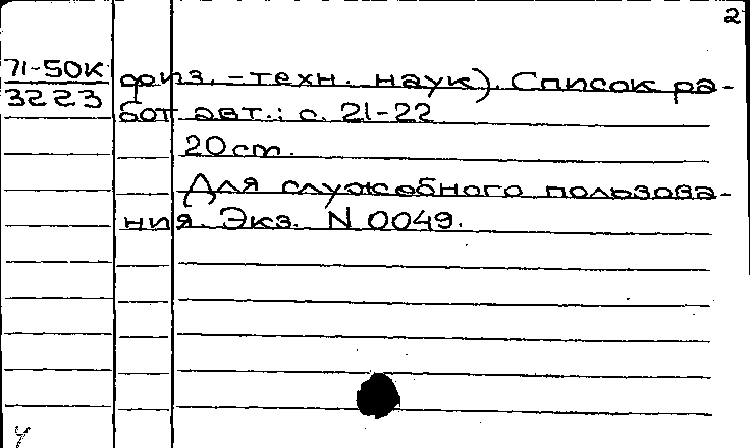 2
71-50К
3223
физ.-техн. наук). Список ра-
бот авт.: с. 21-22
20 cm.
Для служебного пользова-
ния. Экз. N 0049.